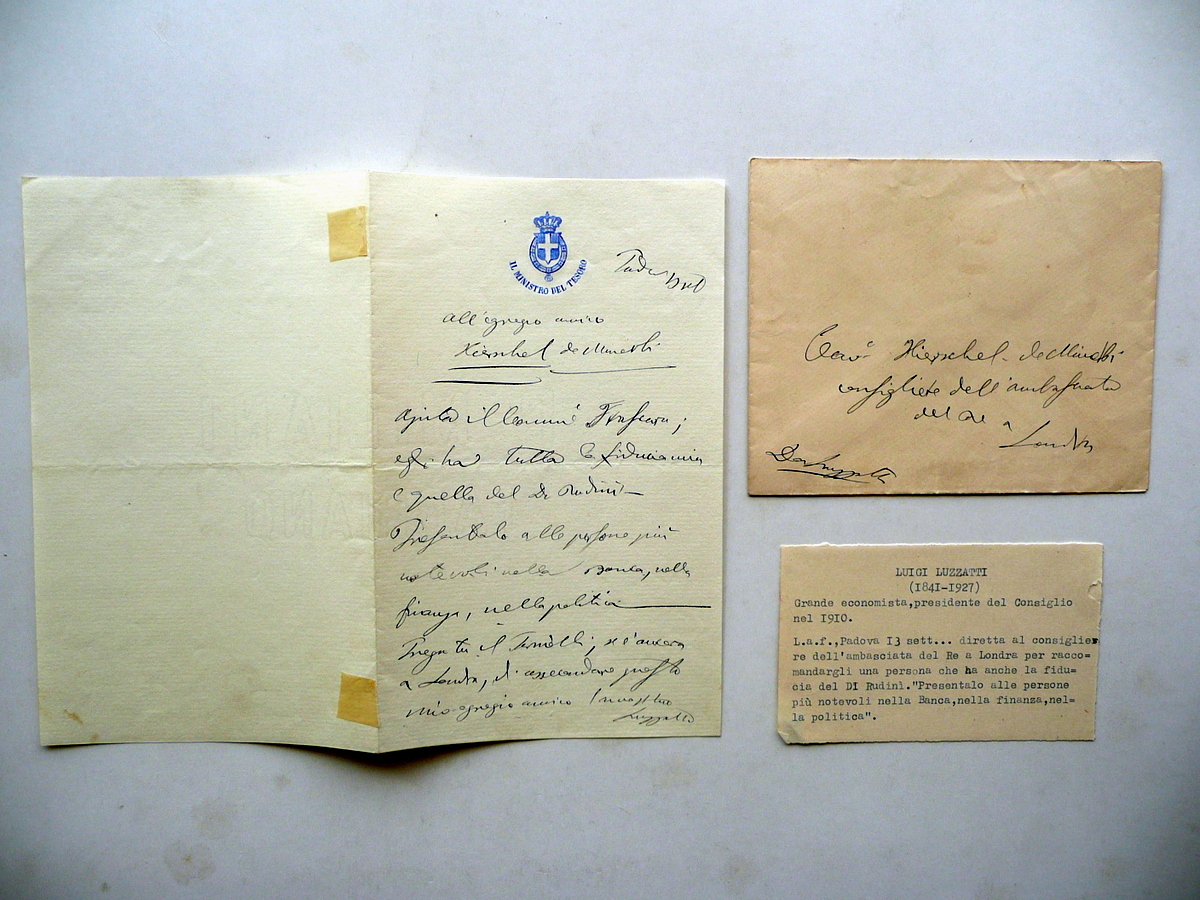 IL MINISTRO DEL TESORO
all'egregio amico
Hierschel de Minerbi
Ajuta il
egli ha tutta la fiducia mia
e quella del Di Rudinì—
Presentalo alle persone più
notevoli nella Banca, nella
finanza, nella politica
Prega tu il se è ancora
a Londra, di assecondare questo
mio egregio amico
Luzzatti
Cav. Hierschel de Minerbi
consigliere dell'ambasciata
del Re a
Londra
Da Luzzatti
LUIGI LUZZATTI
(I84I-I927)
Grande economista,presidente del Consiglio
nel I9I0.
L.a.f.,Padova I3 sett... diretta al consiglie=
re dell'ambasciata del Re a Londra per racco=
mandargli una persona che ha anche la fidu=
cia del DI Rudinì."Presentalo alle persone
più notevoli nella Banca,nella finanza,nel=
la politica".